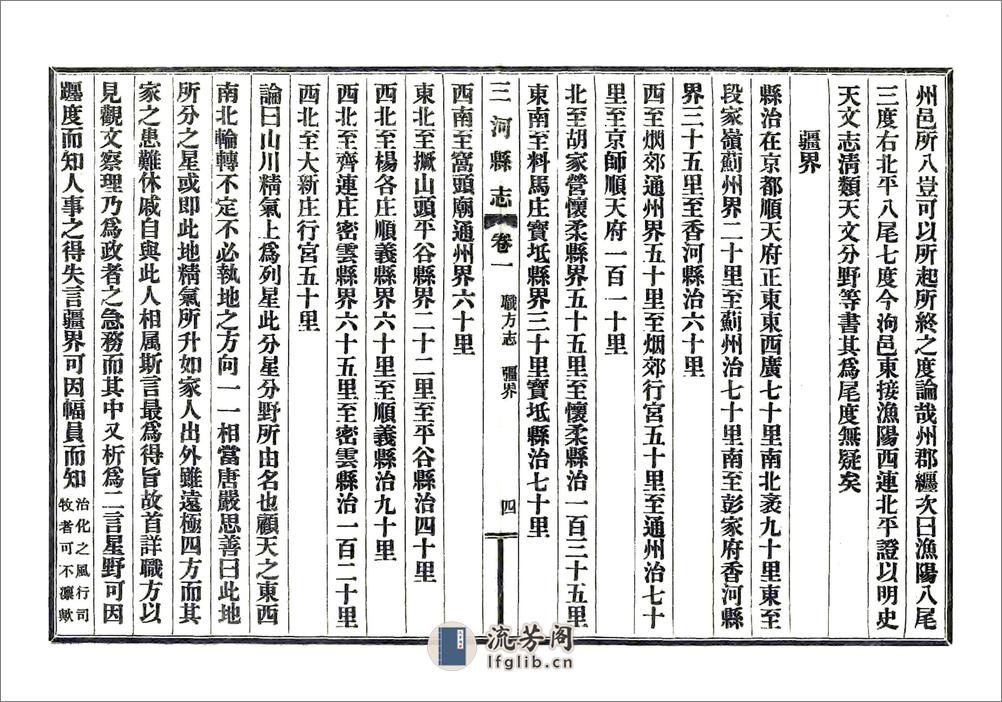 州邑所入豈可以所起所終之度論哉州郡纒次曰漁陽入尾
三度右北平入尾七度今泃邑東接漁陽西連北平證以明史
天文志清類天文分野等書其爲尾度無疑矣
疆界
縣治在京都順天府正東東西廣七十里南北袤九十里東至
段家嶺薊州界二十里至薊州治七十里南至彭家府香河縣
界三十五里至香河縣治六十里
西至烟郊通州界五十里至烟郊行宮五十里至通州治七十
里至京師順天府一百一十里
北至胡家營懷柔縣界五十五里至懷柔縣治一百三十五里
東南至料馬庄寶坻縣界三十里寶坻縣治七十里
三河縣志 卷一 職方志 疆界 四
西南至窩頭廟通州界六十里
東北至撅山頭平谷縣界二十二里至平谷縣治四十里
西北至楊各庄順義縣界六十里至順義縣治九十里
西北至齊連庄密雲縣界六十五里至密雲縣治一百二十里
西北至大新庄行宮五十里
論曰山川精氣上爲列星此分星分野所由名也顧天之東西
南北輪轉不定不必執地之方向一一相當唐嚴思善曰此地
所分之星或即此地精氣所升如家人出外雖遠極四方而其
家之患難休戚自與此人相属斯言最爲得旨故首詳職方以
見觀文察理乃爲政者之急務而其中又析爲二言星野可因
躔度而知人事之得失言疆界可因幅員而知治化之風行司
牧者可不凛歟
流芳阁
lfglib.cn